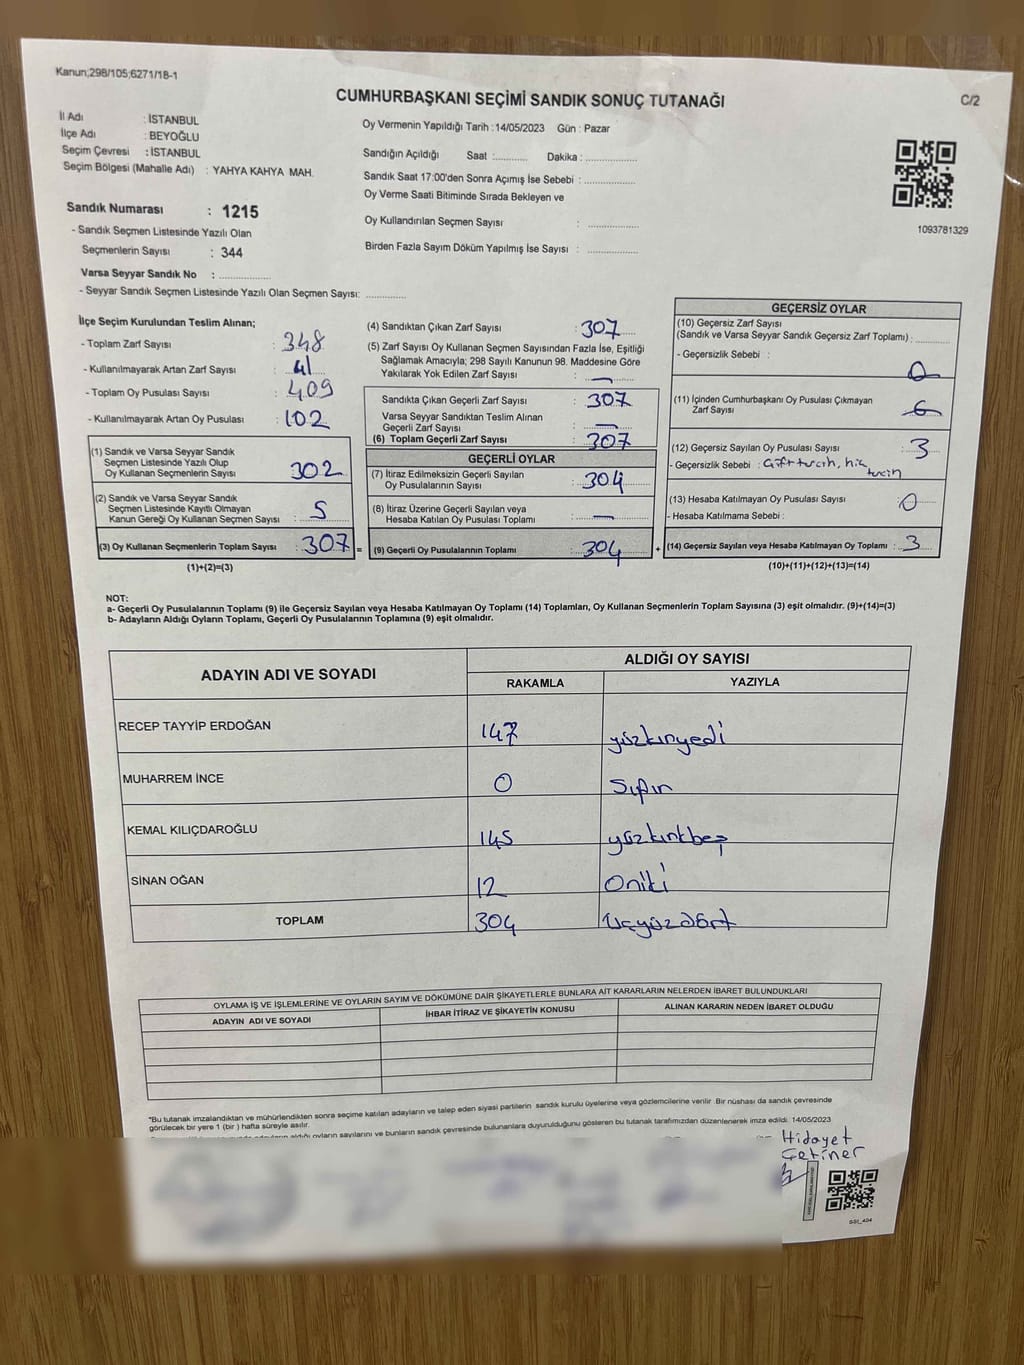 Kanun;298/105;6271/18-1
CUMHURBAŞKANI SEÇİMİ SANDIK SONUÇ TUTANAĞI
C/2
İl Adı : İSTANBUL
İlçe Adı : BEYOĞLU
Seçim Çevresi : İSTANBUL
Seçim Bölgesi (Mahalle Adı) : YAHYA KAHYA MAH.
Oy Vermenin Yapıldığı Tarih : 14/05/2023 Gün : Pazar
Sandığın Açıldığı Saat :............ Dakika : ................
Sandık Saat 17:00'den Sonra Açımış İse Sebebi : ................
Oy Verme Saati Bitiminde Sırada Bekleyen ve
Oy Kullandırılan Seçmen Sayısı : ................
Birden Fazla Sayım Döküm Yapılmış İse Sayısı : ................
1093781329
Sandık Numarası : 1215
- Sandık Seçmen Listesinde Yazılı Olan
Seçmenlerin Sayısı : 344
Varsa Seyyar Sandık No : ................
- Seyyar Sandık Seçmen Listesinde Yazılı Olan Seçmen Sayısı: ............
İlçe Seçim Kurulundan Teslim Alınan;
- Toplam Zarf Sayısı : 348
- Kullanılmayarak Artan Zarf Sayısı : 41
- Toplam Oy Pusulası Sayısı : 409
- Kullanılmayarak Artan Oy Pusulası : 102
(1) Sandık ve Varsa Seyyar Sandık
Seçmen Listesinde Yazılı Olup
Oy Kullanan Seçmenlerin Sayısı : 302
(2) Sandık ve Varsa Seyyar Sandık
Seçmen Listesinde Kayıtlı Olmayan
Kanun Gereği Oy Kullanan Seçmen Sayısı : 5
(3) Oy Kullanan Seçmenlerin Toplam Sayısı : 307 =
(1)+(2)=(3)
(4) Sandıktan Çıkan Zarf Sayısı : 307
(5) Zarf Sayısı Oy Kullanan Seçmen Sayısından Fazla İse, Eşitliği
Sağlamak Amacıyla; 298 Sayılı Kanunun 98. Maddesine Göre
Yakılarak Yok Edilen Zarf Sayısı : —
Sandıkta Çıkan Geçerli Zarf Sayısı : 307
Varsa Seyyar Sandıktan Teslim Alınan
Geçerli Zarf Sayısı : —
(6) Toplam Geçerli Zarf Sayısı : 307
GEÇERLİ OYLAR
(7) İtiraz Edilmeksizin Geçerli Sayılan
Oy Pusulalarının Sayısı : 304
(8) İtiraz Üzerine Geçerli Sayılan veya
Hesaba Katılan Oy Pusulası Toplamı : —
(9) Geçerli Oy Pusulalarının Toplamı : 304 +
GEÇERSİZ OYLAR
(10) Geçersiz Zarf Sayısı
(Sandık ve Varsa Seyyar Sandık Geçersiz Zarf Toplamı) : ............
- Geçersizlik Sebebi : 0
(11) İçinden Cumhurbaşkanı Oy Pusulası Çıkmayan
Zarf Sayısı :
(12) Geçersiz Sayılan Oy Pusulası Sayısı : 3
- Geçersizlik Sebebi : Çift tercih, hiç
tercih
(13) Hesaba Katılmayan Oy Pusulası Sayısı : 0
- Hesaba Katılmama Sebebi :
(14) Geçersiz Sayılan veya Hesaba Katılmayan Oy Toplamı : 3
(10)+(11)+(12)+(13)=(14)
NOT:
a- Geçerli Oy Pusulalarının Toplamı (9) ile Geçersiz Sayılan veya Hesaba Katılmayan Oy Toplamı (14) Toplamları, Oy Kullanan Seçmenlerin Toplam Sayısına (3) eşit olmalıdır. (9)+(14)=(3)
b- Adayların Aldığı Oyların Toplamı, Geçerli Oy Pusulalarının Toplamına (9) eşit olmalıdır.
ADAYIN ADI VE SOYADI
ALDIĞI OY SAYISI
RAKAMLA YAZIYLA
RECEP TAYYİP ERDOĞAN 147 yüzkırkyedi
MUHARREM İNCE 0 Sıfır
KEMAL KILIÇDAROĞLU 145 yüzkırkbeş
SİNAN OĞAN 12 Oniki
TOPLAM 304 Üçyüzdört
OYLAMA İŞ VE İŞLEMLERİNE VE OYLARIN SAYIM VE DÖKÜMÜNE DAİR ŞİKAYETLERLE BUNLARA AİT KARARLARIN NELERDEN İBARET BULUNDUKLARI
ADAYIN ADI VE SOYADI İHBAR İTİRAZ VE ŞİKAYETİN KONUSU ALINAN KARARIN NEDEN İBARET OLDUĞU
*Bu tutanak imzalandıktan ve mühürlendikten sonra seçime katılan adayların ve talep eden siyasi partilerin sandık kurulu üyelerine veya gözlemcilerine verilir .Bir nüshası da sandık çevresinde
görülecek bir yere 1 (bir ) hafta süreyle asılır.
adayların aldığı oyların sayılarını ve bunların sandık çevresinde bulunanlara duyurulduğunu gösteren bu tutanak tarafımızdan düzenlenerek imza edildi. 14/05/2023
Hidayet
Çetiner
GSI_404